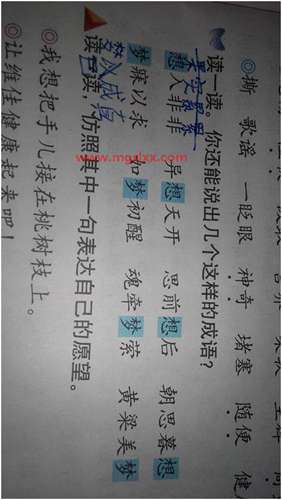 撕 歌谣 一眨眼 神奇 堵塞 随便 健
读一读。你还能说出几个这样的成语?
想入非非 异想天开 思前想后 朝思暮想
梦寐以求 如梦初醒 魂牵梦萦 黄粱美梦
成真
读一读,仿照其中一句表达自己的愿望。
◎我想把手儿接在桃树枝上。
◎让维佳健康起来吧!